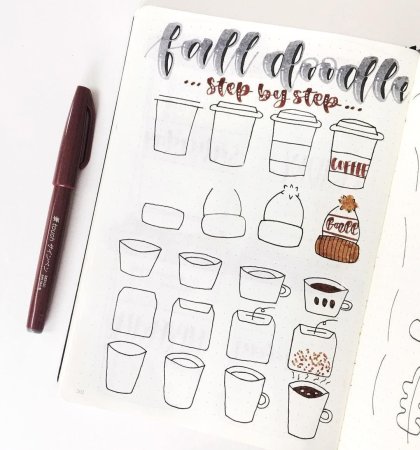 fall doodle
... step by step ...
COFFEE
fall